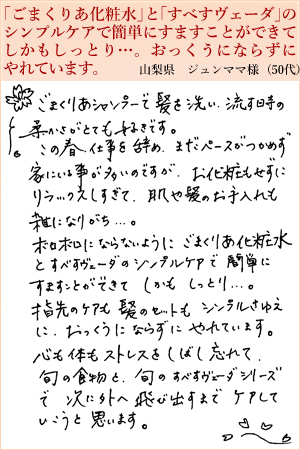 「ごまくりあ化粧水」と「すべすヴェーダ」の
シンプルケアで簡単にすますことができて
しかもしっとり…。おっくうにならずに
やれています。　山梨県　ジュンママ様（50代）
ごまくりあシャンプーで髪を洗い、流す時の
柔かさがとても好きです。
この春、仕事を辞め、まだペースがつかめず
家にいる事が多いのですが、お化粧もせずに
リラックスしすぎて、肌や髪のお手入れも
雑になりがち…。
ボロボロにならないように ごまくりあ化粧水
とすべすヴェーダのシンプルケアで 簡単に
すますことができて しかも しっとり…。
指先のケアも 髪のセットも シンプルさゆえ
に、おっくうにならずに やれています。
心も体も ストレスを しばし 忘れて、
旬の食物と、旬の すべすヴェーダシリーズ
で 次に外へ 飛び出すまで ケアして
いこうと 思います。